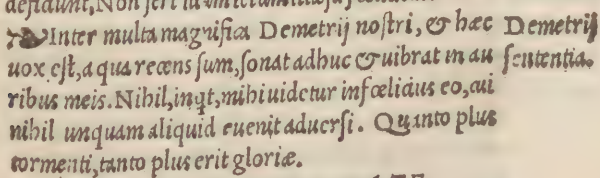 Inter multa magnifica Demetrij nostri, & hæc Demetrij
uox est, a qua recens sum, sonat adhuc & uibrat in au sententia.
ribus meis. Nihil, inqt, mihi uidetur infœlicius eo, cui
nihil unquam aliquid euenit aduersi. Quanto plus
tormenti, tanto plus erit gloriæ.